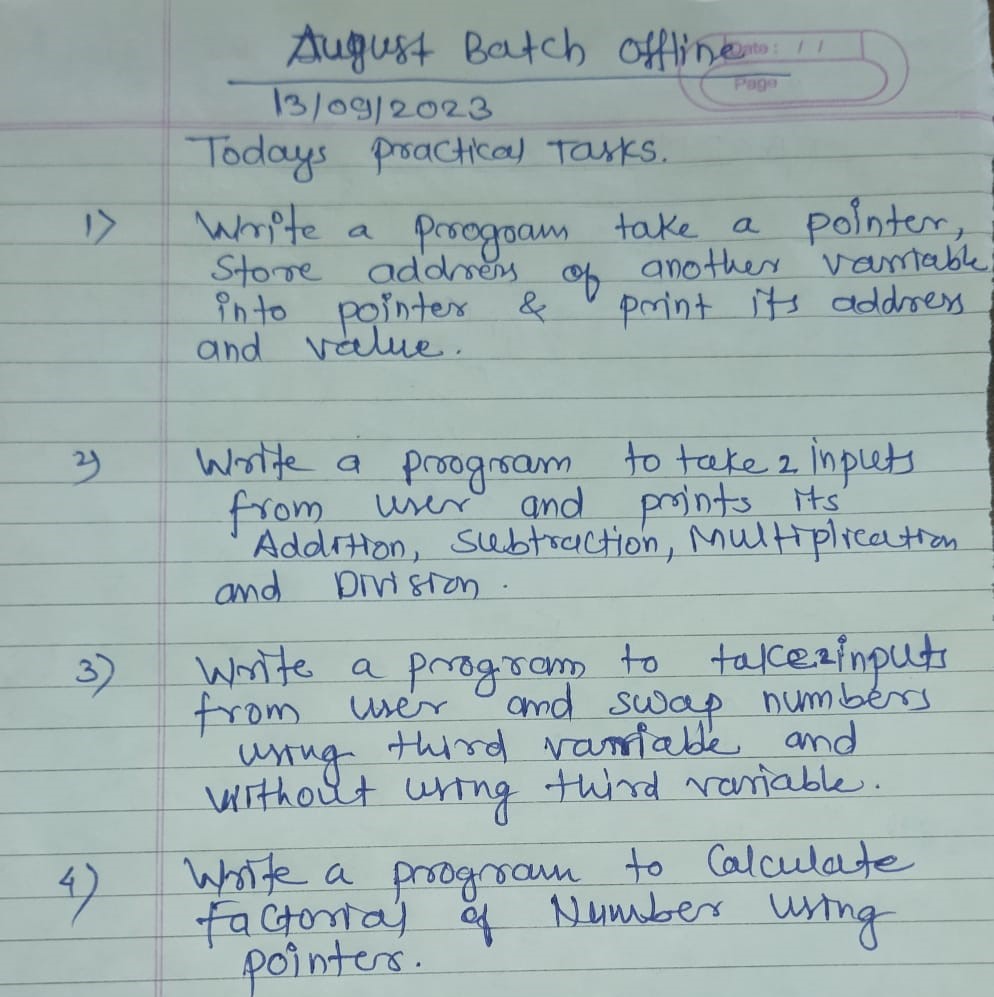 August Batch Offline
Date: / /
Page
13/09/2023
Todays practical Tasks.
1) Write a program take a pointer,
Store address of another variable
into pointer & print its address
and value.
2) Write a program to take 2 inputs
from user and prints its
Addition, Subtraction, Multiplication
and Division.
3) Write a program to take 2 inputs
from user and swap numbers
using third variable and
without using third variable.
4) Write a program to Calculate
factorial of Number using
pointers.